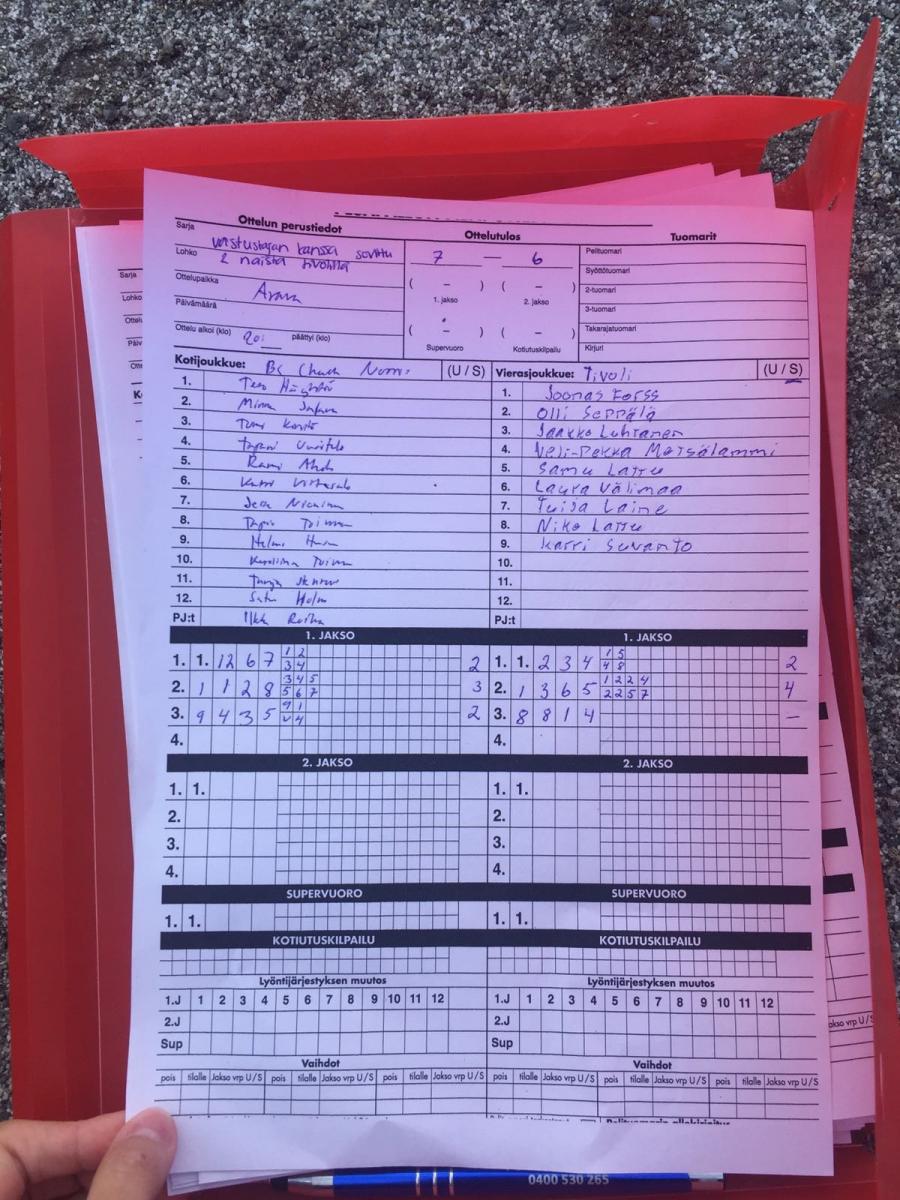 Ottelun perustiedot Ottelutulos Tuomarit
Sarja
vastustajan kanssa sovittu
Lohko 2 naista tivolilla
7 — 6
Pelituomari
Syöttötuomari
Ottelupaikka Arena
( – ) ( – )
1. jakso 2. jakso
2-tuomari
Päivämäärä
3-tuomari
Ottelu alkoi (klo) 20: päättyi (klo)
( – ) ( – )
Supervuoro Kotiutuskilpailu
Takarajatuomari
Kirjuri
Kotijoukkue: BC Chuck Norris (U / S) Vierasjoukkue: Tivoli (U / S)
1. Tero 1. Joonas Forss
2. Minna 2. Olli Seppälä
3. Tomi 3. Jaakko Luhtanen
4. 4. Veli-Pekka Metsälammi
5. Rami Aho 5. Samu Lassu
6. Katri Virtasalo 6. Laura Välimaa
7. Jesse Nieminen 7. Tuija Laine
8. Tapio Toivonen 8. Niko Lassu
9. Helmi 9. Karri Suvanto
10. Karoliina Toivonen 10.
11. Tanja 11.
12. Satu Holm 12.
PJ:t Ilkka PJ:t
1. JAKSO 1. JAKSO
1. 1. 12 6 7 1 2 3 4 2 1. 1. 2 3 4 1 5 4 8 2
2. 1 1 2 8 3 4 5 5 6 7 3 2. 1 3 6 5 1 2 2 4 2 2 5 7 4
3. 9 4 3 5 9 1 4 2 3. 8 8 1 4 –
4. 4.
2. JAKSO 2. JAKSO
1. 1. 1. 1.
2. 2.
3. 3.
4. 4.
SUPERVUORO SUPERVUORO
1. 1. 1. 1.
KOTIUTUSKILPAILU KOTIUTUSKILPAILU
Lyöntijärjestyksen muutos Lyöntijärjestyksen muutos
1.J 1 2 3 4 5 6 7 8 9 10 11 12 1.J 1 2 3 4 5 6 7 8 9 10 11 12
2.J 2.J
Sup Sup
Vaihdot Vaihdot
pois tilalle Jakso vrp U/S pois tilalle Jakso vrp U/S pois tilalle Jakso vrp U/S pois tilalle Jakso vrp U/S pois tilalle Jakso vrp U/S pois tilalle Jakso vrp U/S
Pelituomarin allekirjoitus
0400 530 265